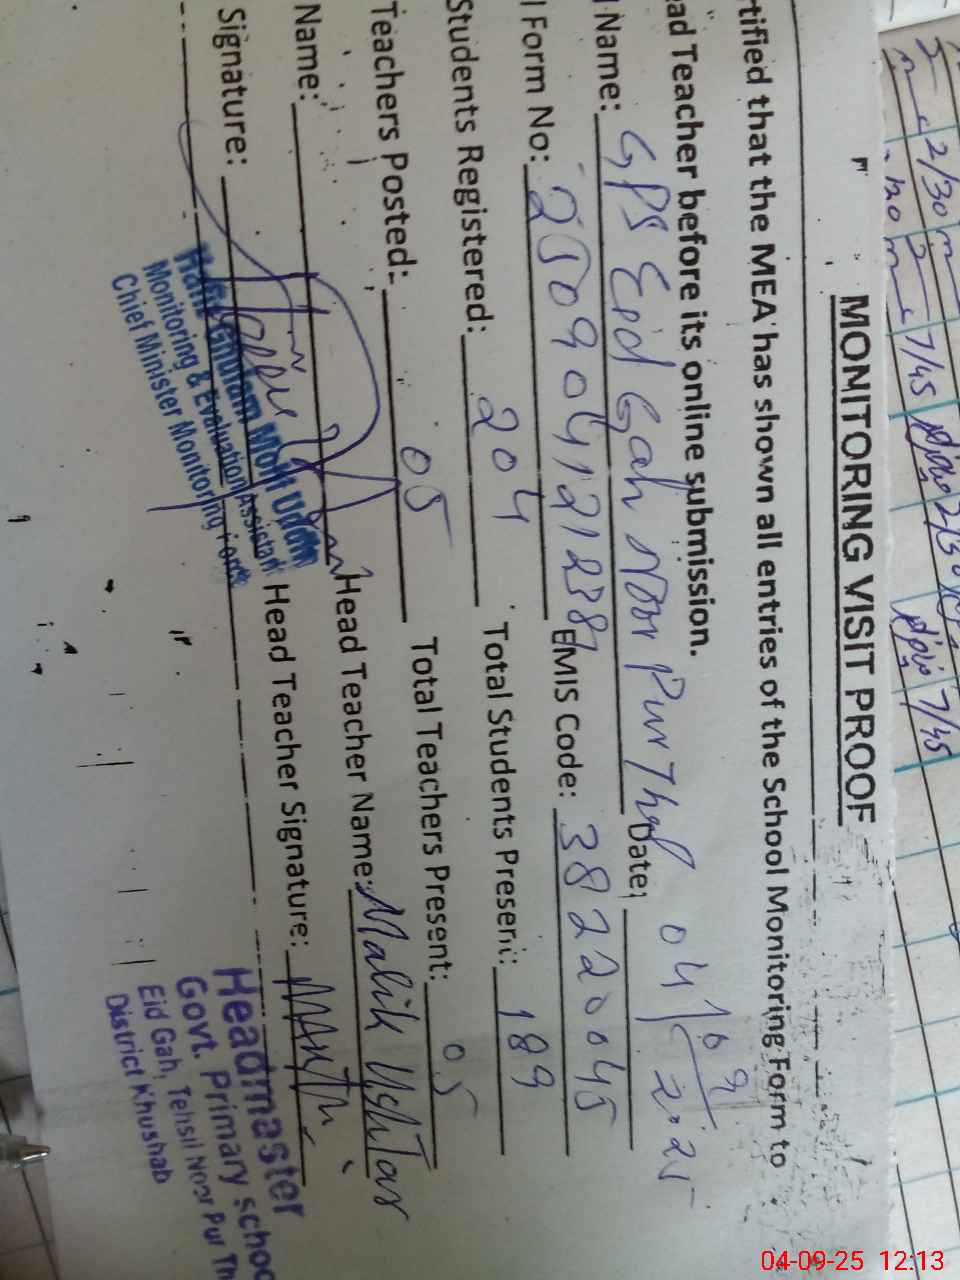 MONITORING VISIT PROOF
rtified that the MEA has shown all entries of the School Monitoring Form to
ad Teacher before its online submission.
l Name: GPS Eid Gah Noor Pur Thal Date: 04/09/2025
l Form No: 2509041212387 EMIS Code: 38220045
Students Registered: 204 Total Students Present: 189
Teachers Posted: 05 Total Teachers Present: 05
Name: Head Teacher Name: Malik
Signature: Head Teacher Signature:
Hafiz Ghulam Moin Uddin
Monitoring & Evaluation Assistant
Chief Minister Monitoring Force
Headmaster
Govt. Primary schoo
Eid Gah, Tehsil Noor Pur Th
District Khushab
2/30
7/45
2/30
7/45
04-09-25 12:13